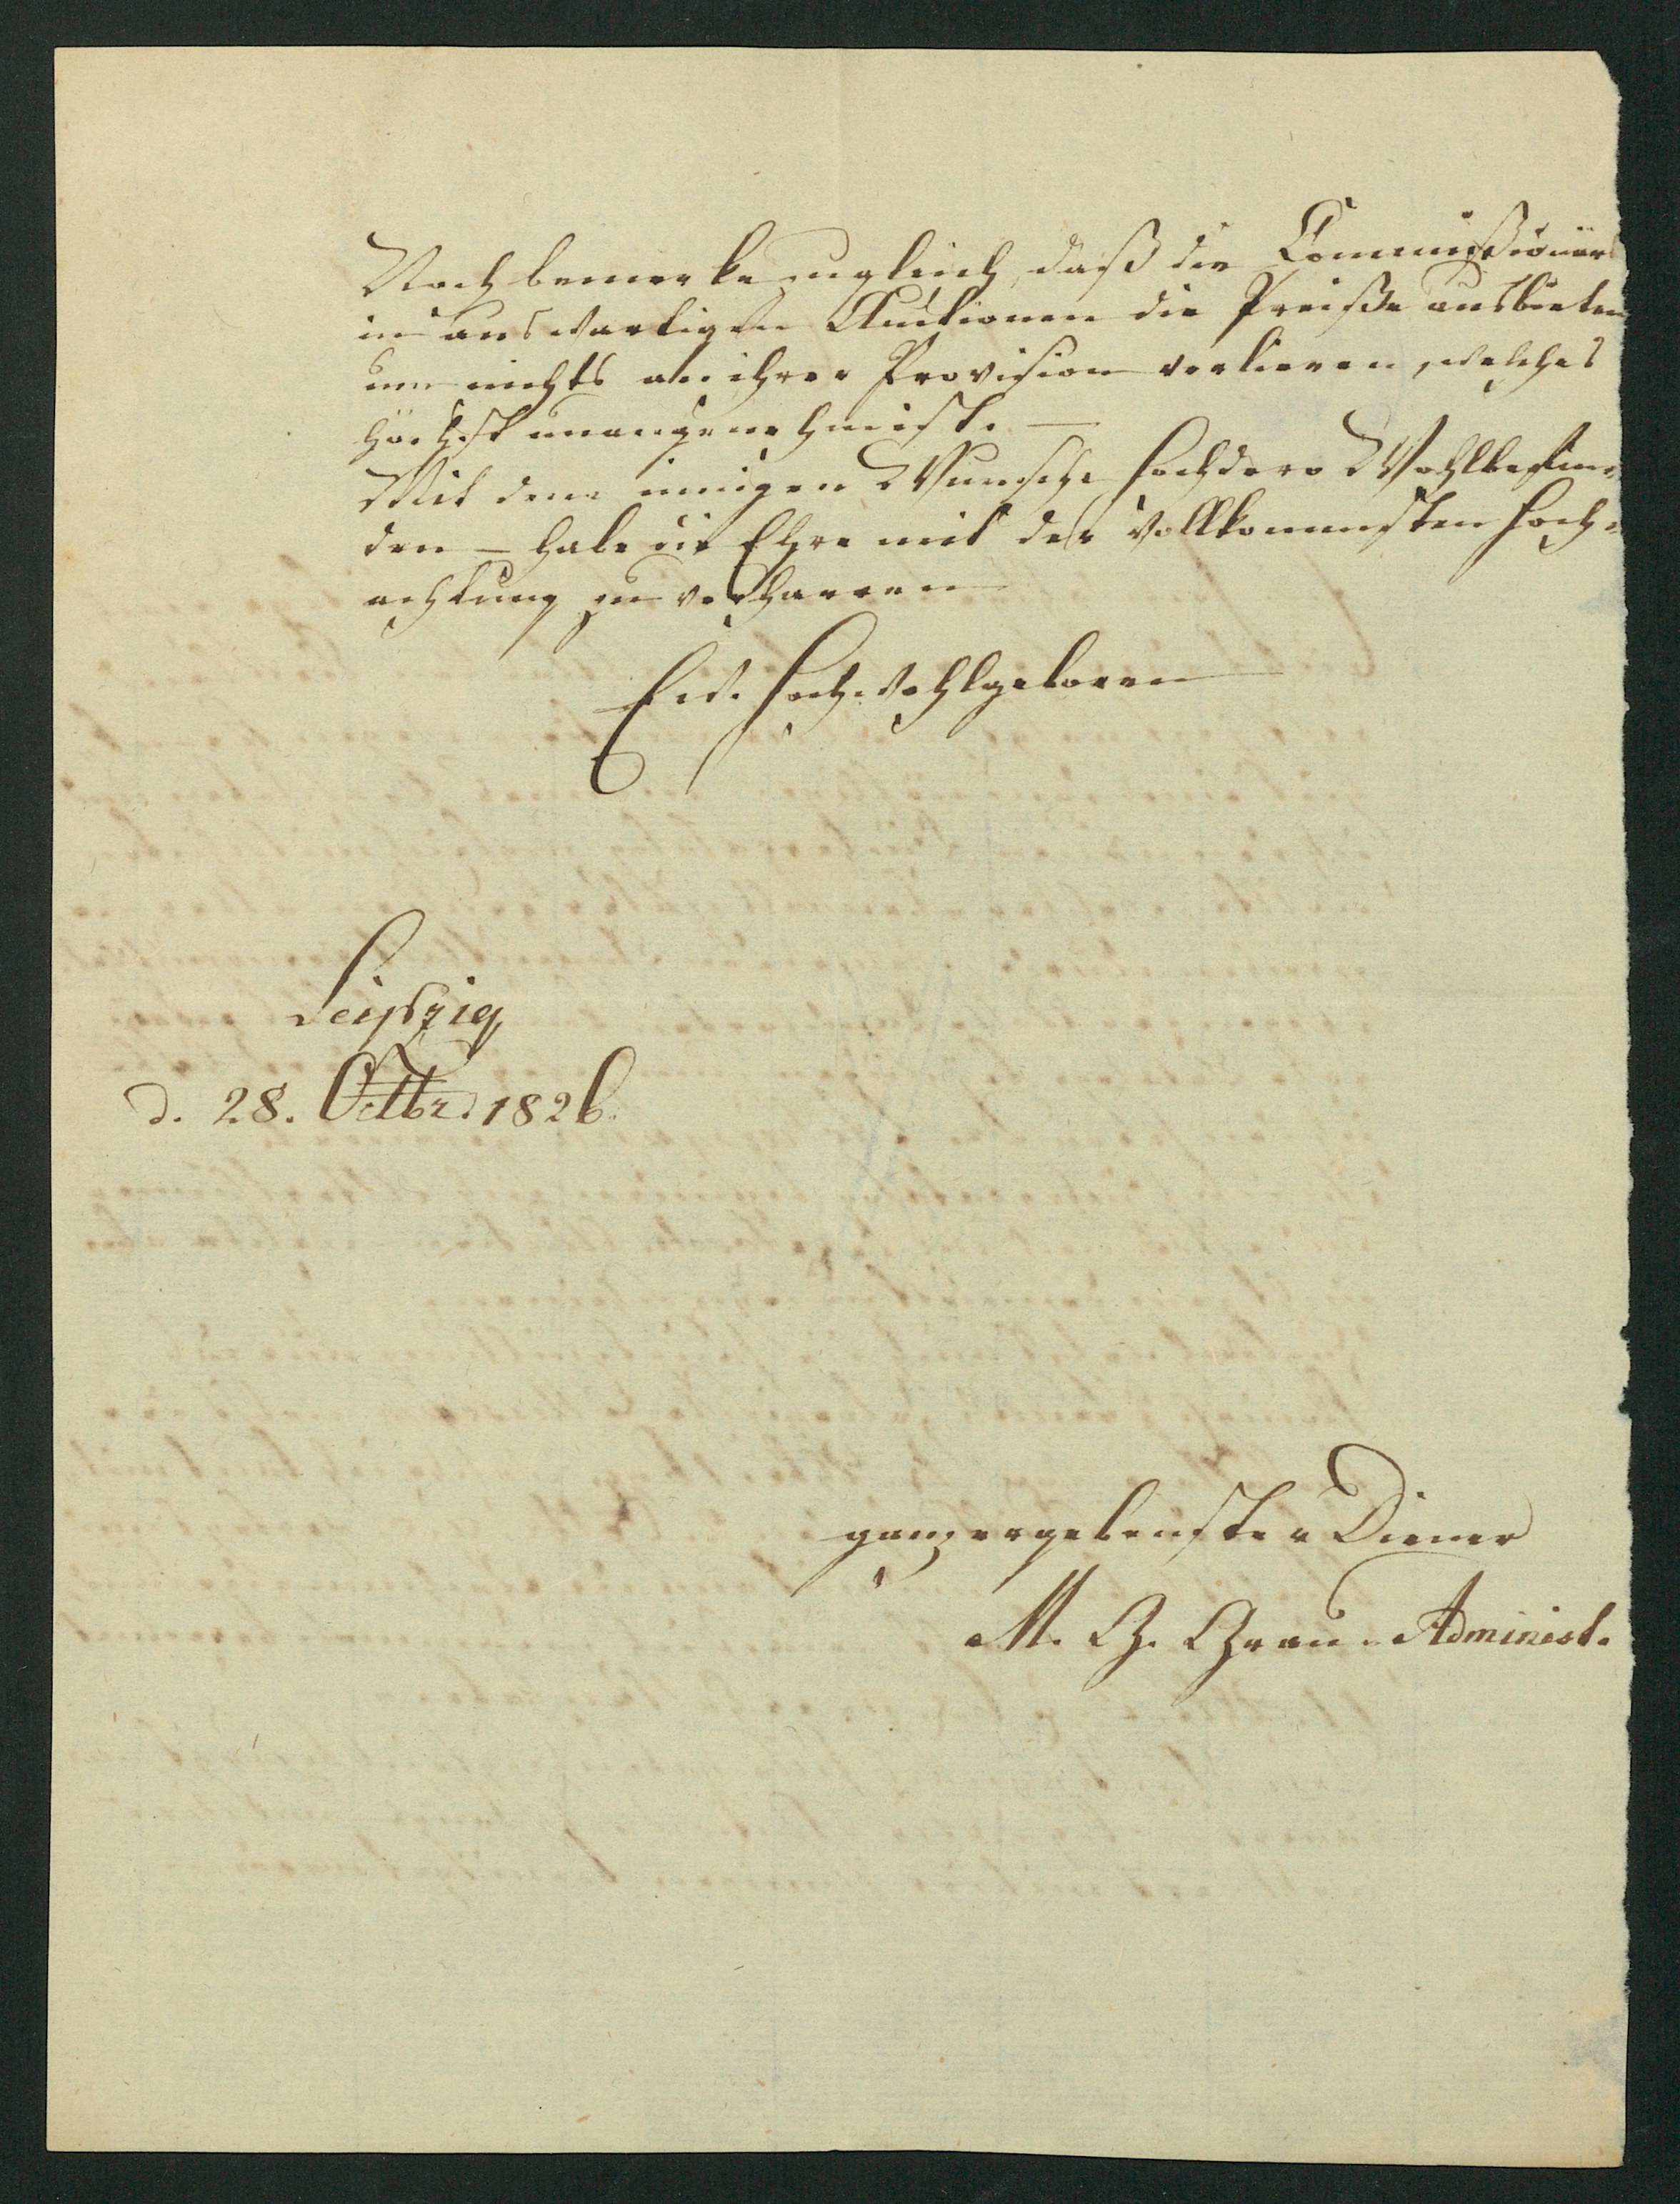 Noch bemerke zugleich, daß die Commißionärs
in auswartigen Auctionen die Preiße ausbieten
um nichts an ihrer Provision verlieren, welches
höchst unangenehm ist. —
Mit dem innigen Wunsche hochdero Wohlbefin-
den — habe die Ehre mit der vollkommsten Hoch-
achtung zu verharren
Ew. Hochwohlgeboren
Leipzig
d. 28. Octbr. 1826.
ganz ergebenster Diener
M. G. Grau. Administ.